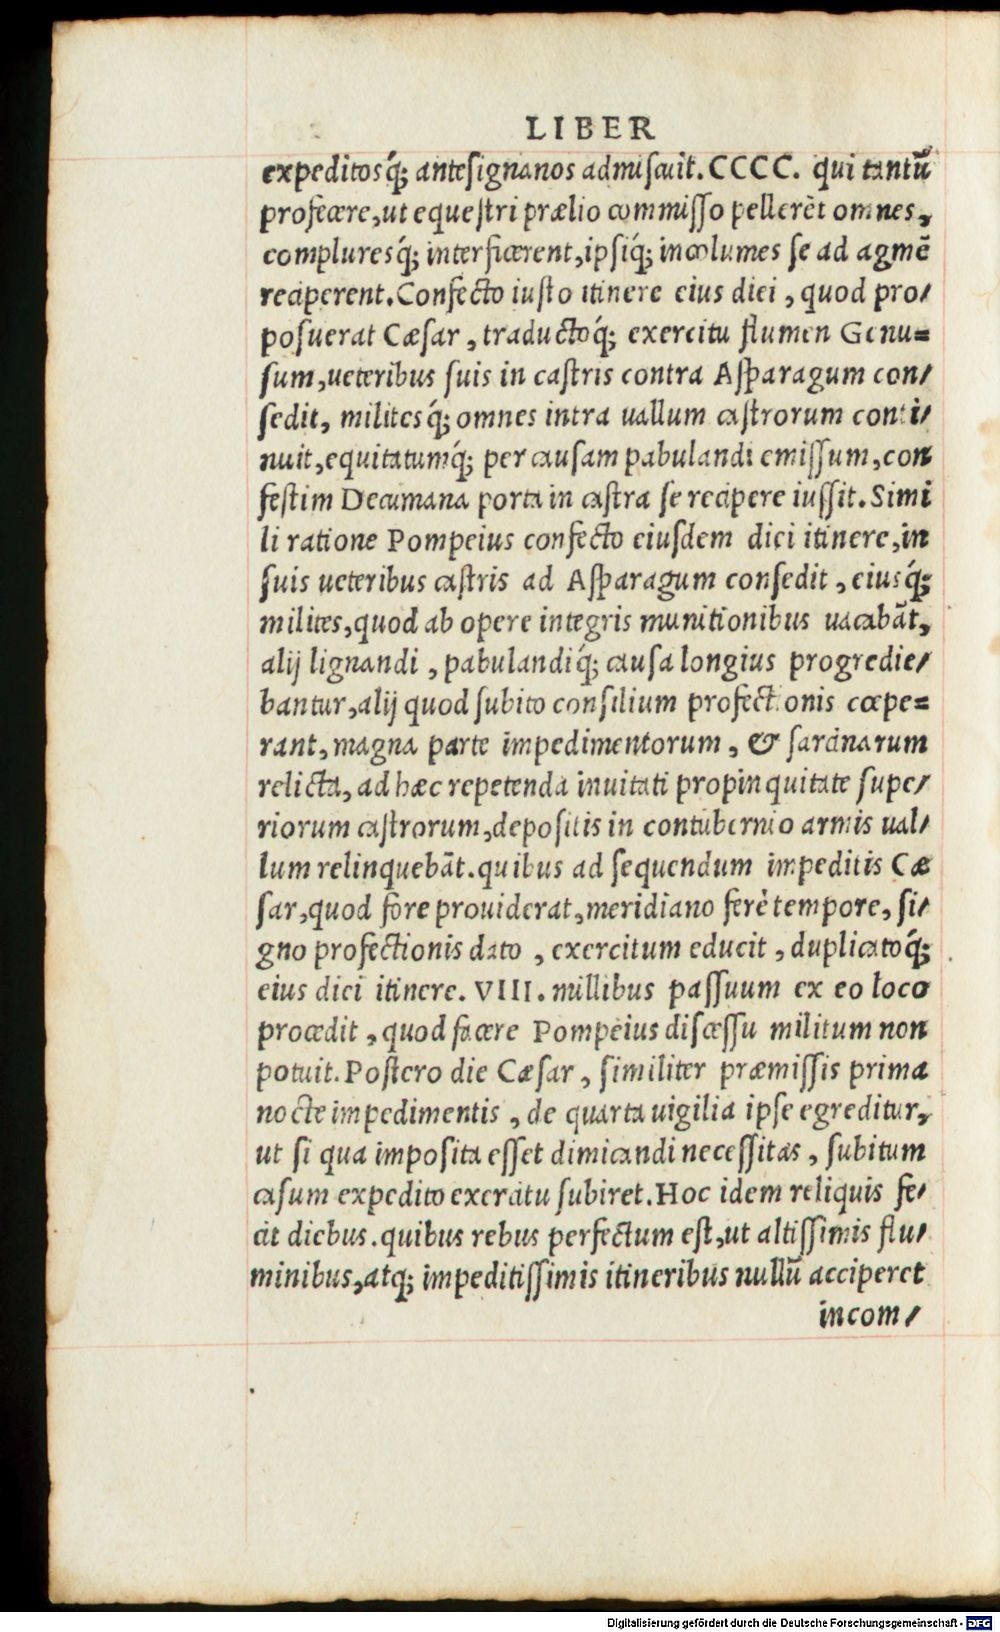 LIBER
expeditosq́; antesignanos admiscuit. CCCC. qui tantū
profecere, ut equestri prælio commisso pellerēt omnes,
compluresq́; interficerent, ipsiq́; incolumes se ad agmē
reciperent. Confecto iusto itinere eius diei, quod pro/
posuerat Cæsar, traductoq́; exercitu flumen Genu=
sum, ueteribus suis in castris contra Asparagum con/
sedit, militesq́; omnes intra uallum castrorum conti/
nuit, equitatumq́; per causam pabulandi emissum, con
festim Decumana porta in castra se recipere iussit. Simi
li ratione Pompeius confecto eiusdem diei itinere, in
suis ueteribus castris ad Asparagum consedit, eiusq́;
milites, quod ab opere integris munitionibus uacabāt,
alij lignandi, pabulandiq́; causa longius progredie/
bantur, alij quod subito consilium profectionis cœpe=
rant, magna parte impedimentorum, & sarcinarum
relicta, ad hæc repetenda inuitati propinquitate supe/
riorum castrorum, depositis in contubernio armis ual/
lum relinquebāt. quibus ad sequendum impeditis Cæ
sar, quod fore prouiderat, meridiano ferè tempore, si/
gno profectionis dato, exercitum educit, duplicatoq́;
eius diei itinere. VIII. millibus passuum ex eo loco
procedit, quod facere Pompeius discessu militum non
potuit. Postero die Cæsar, similiter præmissis prima
nocte impedimentis, de quarta uigilia ipse egreditur,
ut si qua imposita esset dimicandi necessitas, subitum
casum expedito exercitu subiret. Hoc idem reliquis fe/
cit diebus. quibus rebus perfectum est, ut altissimis flu/
minibus, atq; impeditissimis itineribus nullū acciperet
incom/
Digitalisierung gefördert durch die Deutsche Forschungsgemeinschaft - DFG